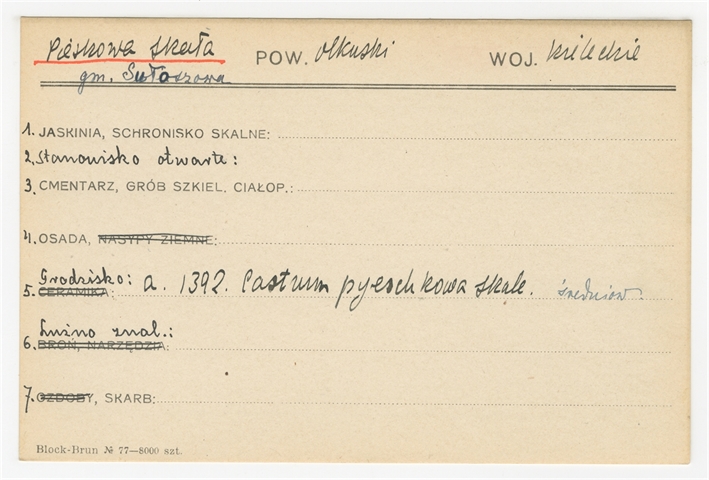 Pieskowa Skała POW. olkuski WOJ. kieleckie
gm. Sułoszowa
1. JASKINIA, SCHRONISKO SKALNE:
2. Stanowisko otwarte:
3. CMENTARZ, GRÓB SZKIEL. CIAŁOP.:
4. OSADA, NASYPY ZIEMNE:
Grodzisko: a. 1392. Castrum pyeschkowa skale. średniow.
5. CERAMIKA:
Luźno znal.:
6. BROŃ, NARZĘDZIA:
7. OZDOBY, SKARB:
Block-Brun № 77—8000 szt.